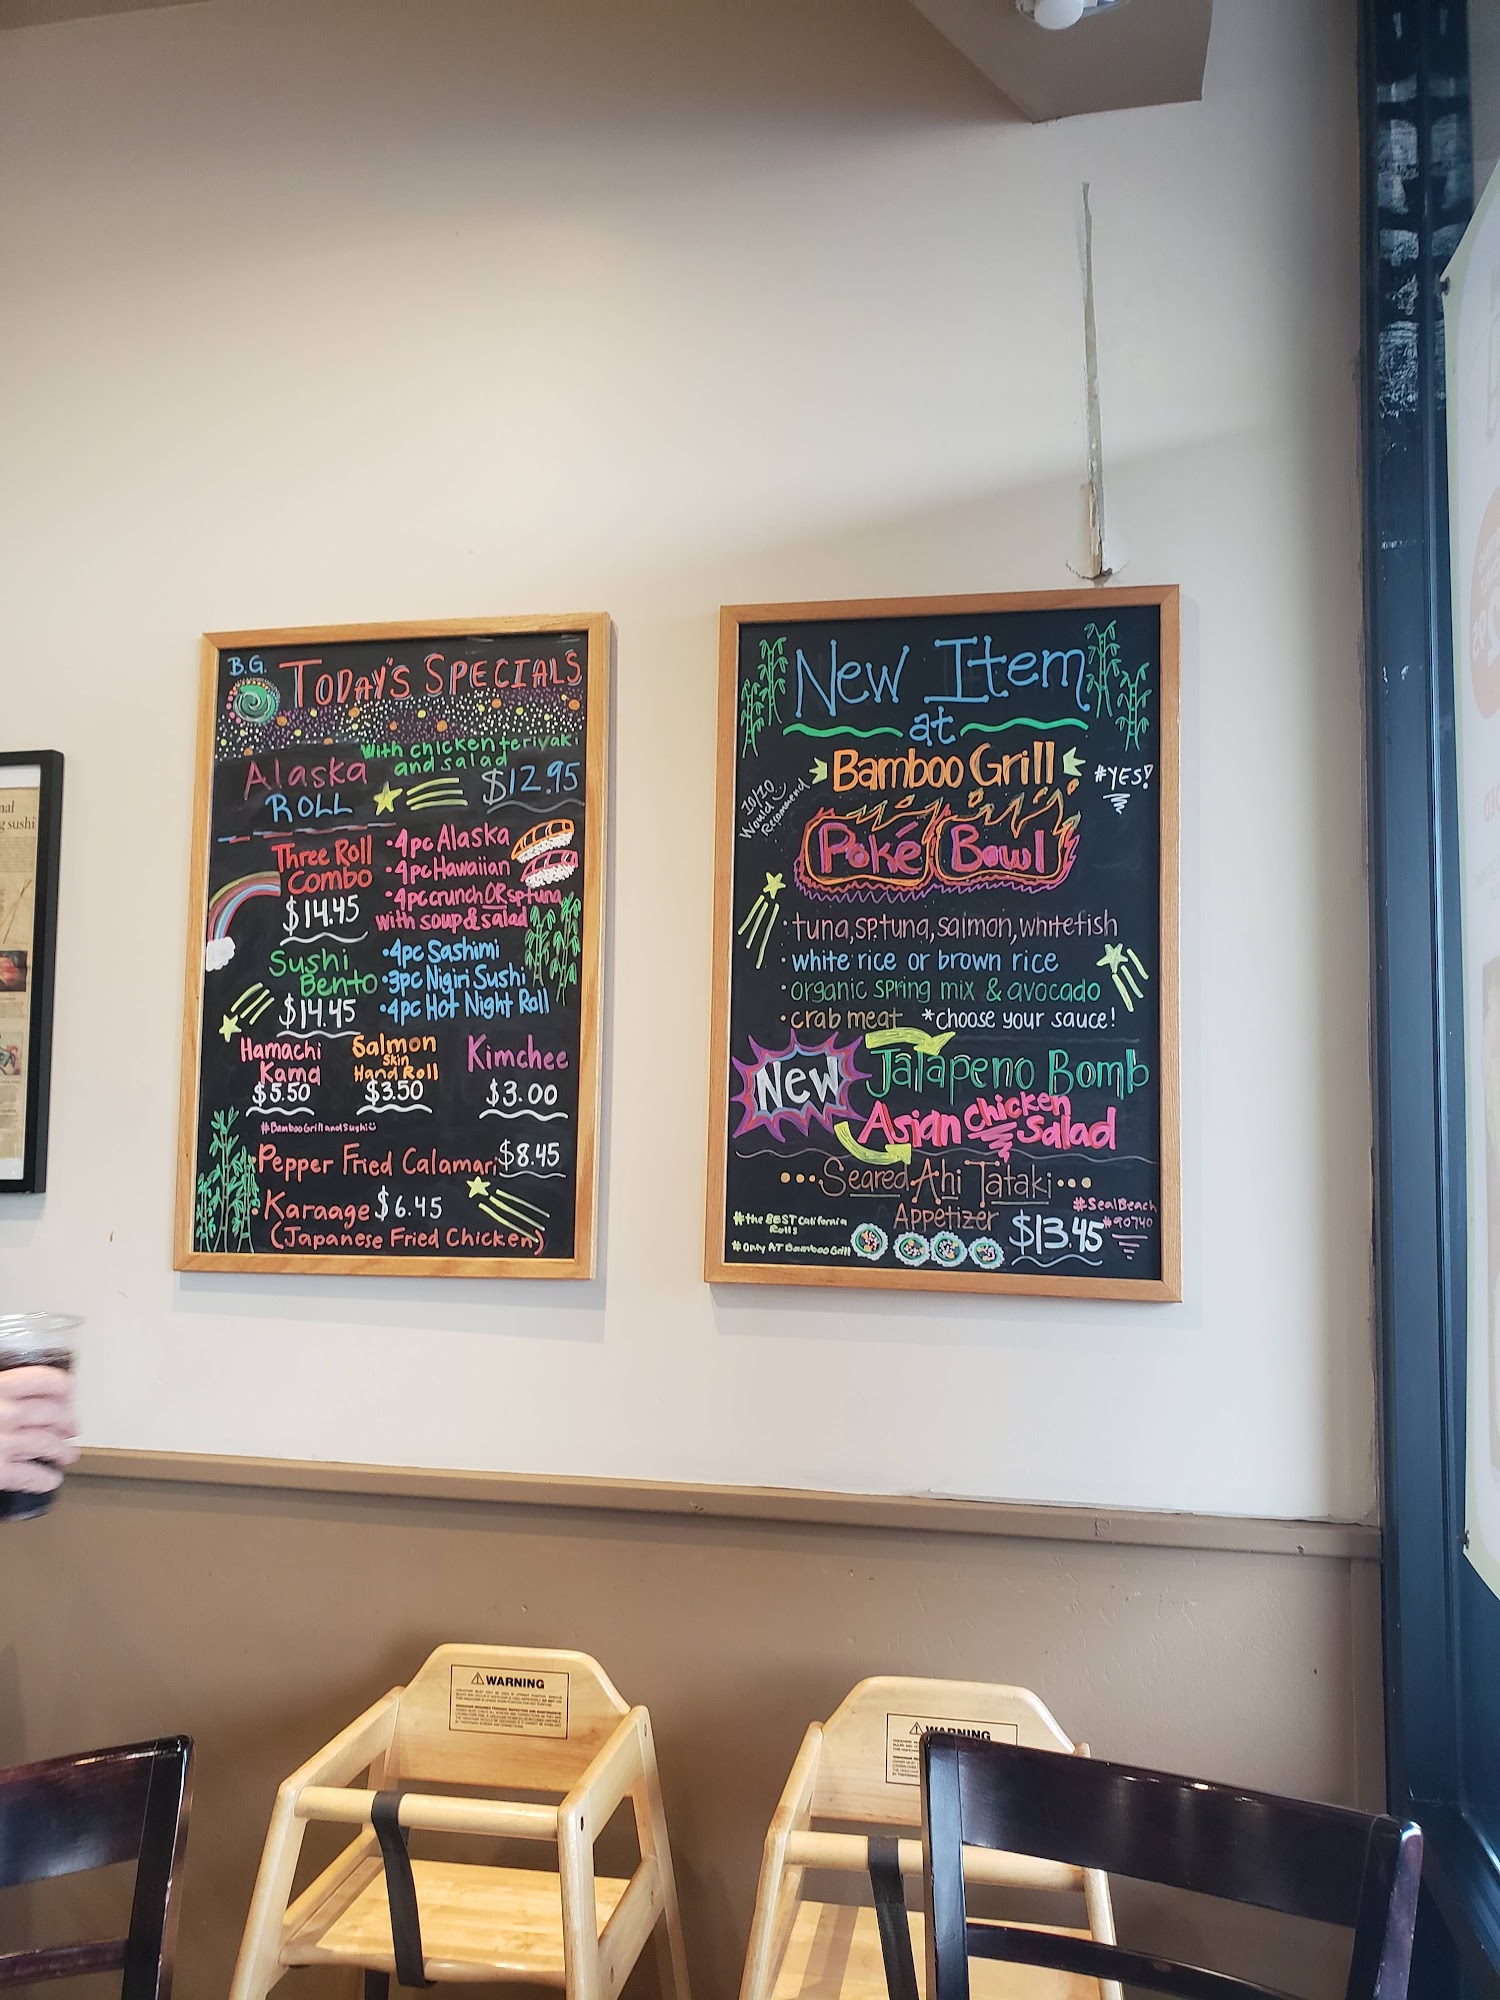 B.G. TODAY'S SPECIALS
with chicken teriyaki
and salad
Alaska
ROLL
$12.95
Three Roll
Combo
$14.45
•4pc Alaska
•4pc Hawaiian
•4pc crunch OR sptuna
with soup & salad
Sushi
Bento
$14.45
•4pc Sashimi
•3pc Nigiri Sushi
•4pc Hot Night Roll
Hamachi
Kama
$5.50
Salmon
Skin
Hand Roll
$3.50
Kimchee
$3.00
#BambooGrillandSushi
•Pepper Fried Calamari $8.45
•Karaage $6.45
(Japanese Fried Chicken)
New Item
at
Bamboo Grill
#YES!
10/10
Would
Recommend
Poké Bowl
•tuna, sp.tuna, salmon, whitefish
•white rice or brown rice
•organic spring mix & avocado
•crab meat *choose your sauce!
New
Jalapeno Bomb
Asian Chicken
Salad
•••Seared Ahi Tataki•••
Appetizer
$13.45
#SealBeach
#90740
#the BEST California
Rolls
#Only AT BambooGrill
WARNING
WARNING
nal
g sushi